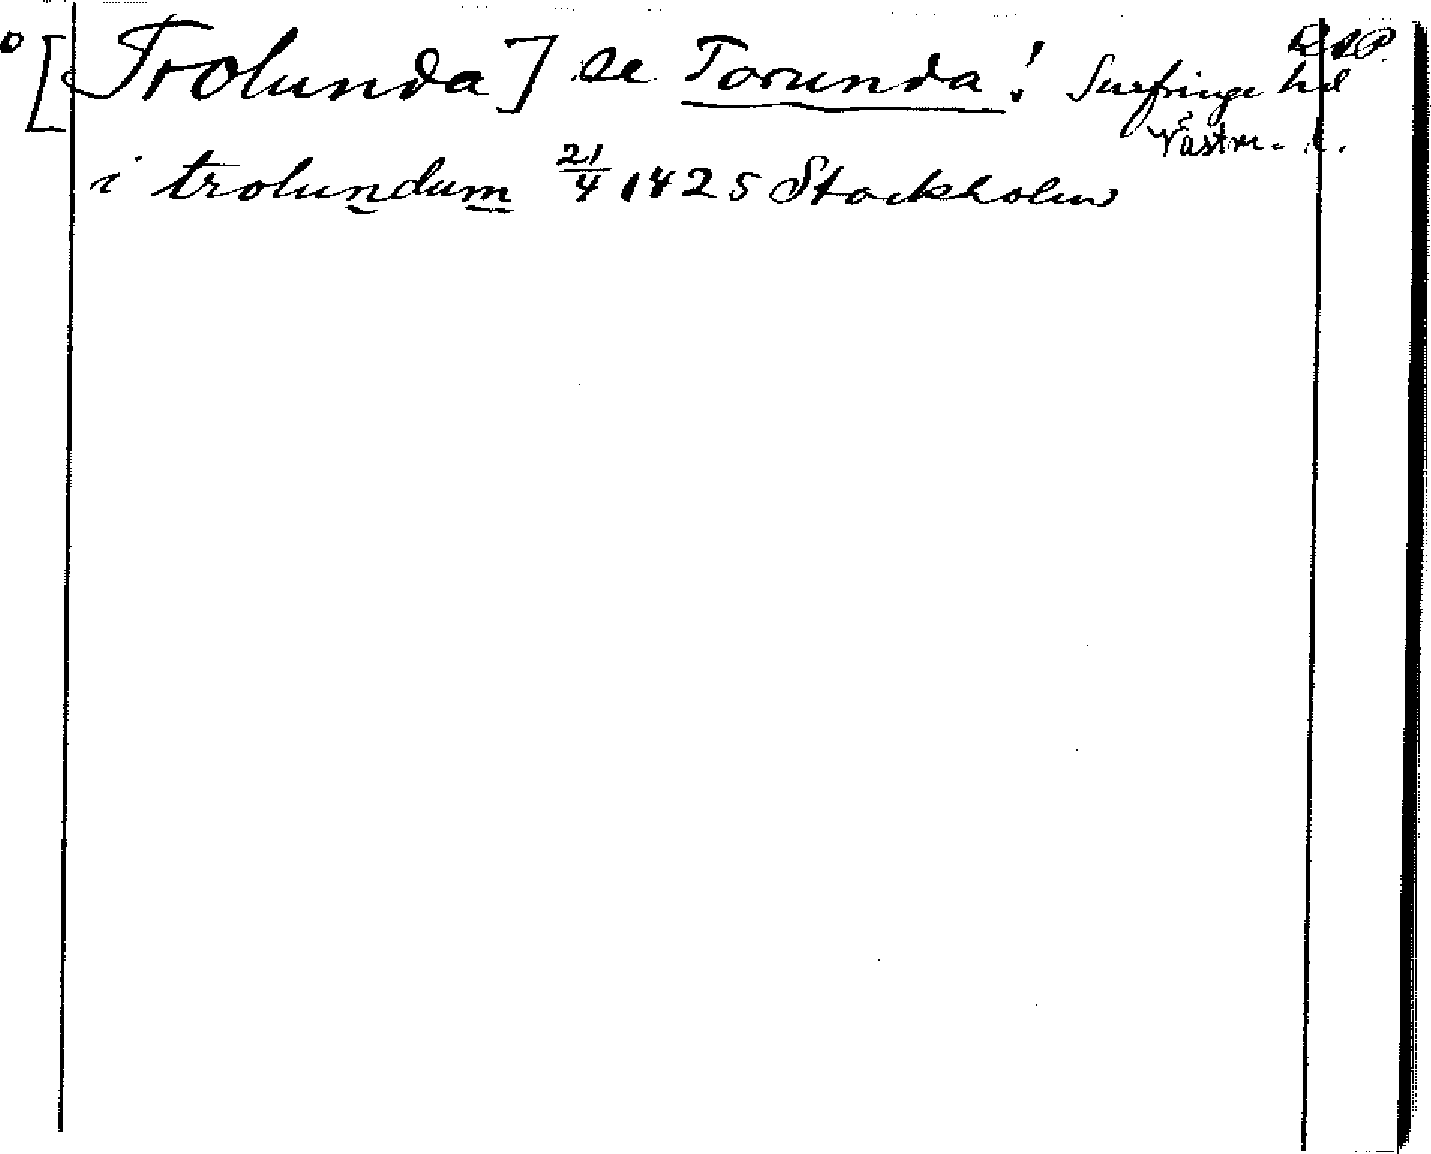 [Trolunda] se Torunda! Surfringe hd
Västm. l.
i trolundum 21/4 1425 Stockholm